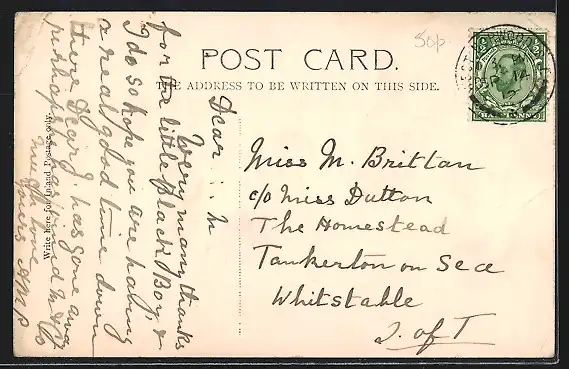 50p.
POST CARD.
THE ADDRESS TO BE WRITTEN ON THIS SIDE.
HALFPENNY
Dear
Very many thanks
for the little Black Boy, &
I do so hope you are having
a real good time down
there Dear. J. has gone away
Much love
Yours A.M.P
Write here for Inland Postage only
Miss M. Brittan
c/o Miss Dutton
The Homestead
Tankerton on Sea
Whitstable
I. of T